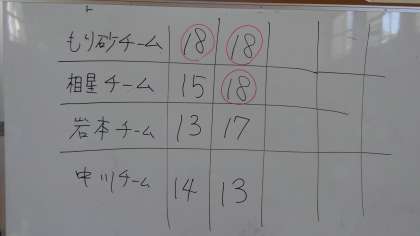 もり砂チーム 18 18
相星チーム 15 18
岩本チーム 13 17
中川チーム 14 13